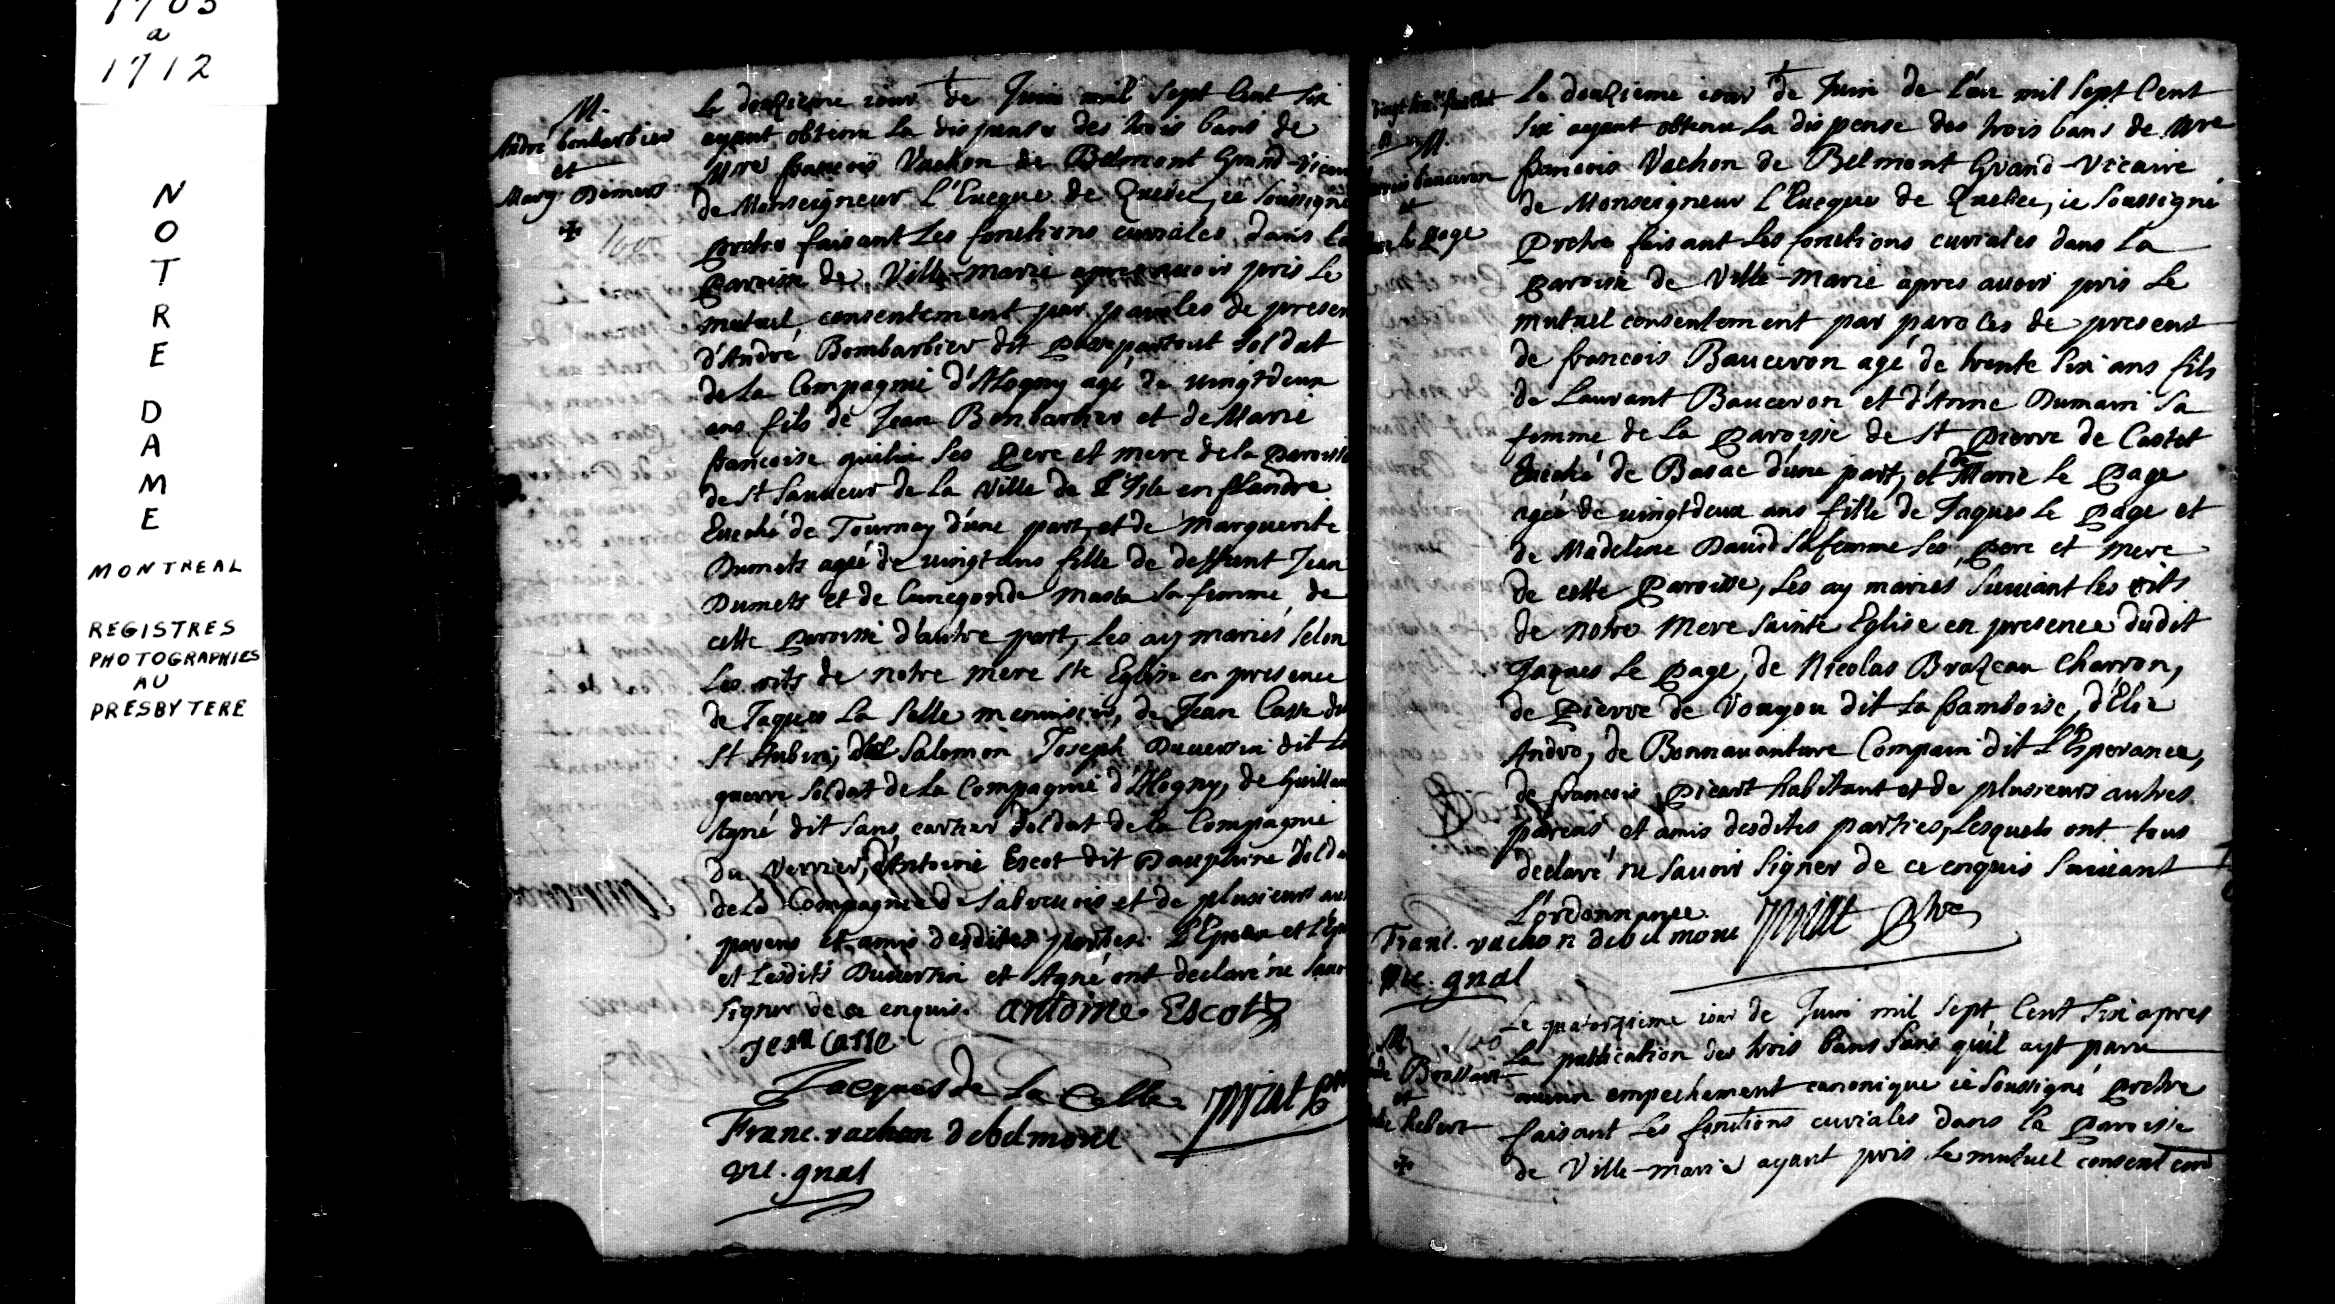 1703
a
1712
NOTRE
DAME
MONTREAL
REGISTRES
PHOTOGRAPHIES
AU
PRESBYTERE
M.
André bonbarbier
et
Marg. Demers
Le deuxieme iour de Juin mil sept Cent six
ayant obtenu la dispense des trois bans de
Mre francois Vachon de Belmont Grand-Vicai
de Monseigneur L'Eueque de Quebec, ie soussigné
Prestre faisant Les fonctions curiales dans la
Paroisse de Ville-marie apres auoir pris Le
mutuel consentement par paroles de presen
d'André Bombarbier dit Passepartout soldat
de la Compagnie d'Hogny agé de uingt deux
ans fils de Jean Bonbarbier et de Marie
francoise quilin ses Pere et mere de la Paroisse
de St Sauueur de la Ville de l'Isle en flandre
Eueché de Tournay d'une part, et de Marguerite
Dumets agée de uingt ans fille de deffunt Jean
Dumets et de Cunegonde Masta sa femme, de
cette Paroisse d'autre part, les ay mariés selon
Les rits de notre mere Ste Eglise en presence
de Jaques La Selle menuisier, de Jean Casse du
St Aubin, Salomon Joseph Duuersin dit La
guerre soldat de la Compagnie d'Hogny, de Guillau
Agné dit sans cartier soldat de la Compagnie
du Verrier, d'Antoine Escot dit Dauphiné solda
de la Compagnie de Sabreuois et de plusieurs au
parens et amis desdites parties. L'Epoux et l'Ep
et Lesdits Duuersin et Agné ont declaré ne sauo
signer de ce enquis. antoine Escot
Jean Casse
Jacques de La Celle priat Ptre
Franc. vachon de belmont
vic. gnal
M.
francois bauceron
et
le Page
Le deuxieme iour de Juin de l'an mil sept Cent
six ayant obtenu La dispense des trois bans de Mre
francois Vachon de Belmont Grand-Vicaire
de Monseigneur L'Eueque de Quebec, ie soussigné
Prestre faisant Les fonctions curiales dans La
Paroisse de Ville-Marie apres auoir pris Le
mutuel consentement par paroles de present
de francois Bauceron agé de trente six ans fils
de Laurant Bauceron et d'Anne Dumain sa
femme de La Paroisse de St Pierre de Castet
Eueché de Basac d'une part, et de Marie le Page
agée de uingt deux ans fille de Jaques le Page et
de Madeleine David sa femme ses Pere et mere
de cette Paroisse, Les ay mariés suiuant les rits
de notre Mere Sainte Eglise en presence dudit
Jaques Le Page, de Nicolas Brazeau Charron,
de Pierre de Vouyou dit La framboise, d'Elie
Andro, de Bonnauanture Compain dit L'Esperance,
de francois Picart habitant et de plusieurs autres
parens et amis desdites parties, Lesquels ont tous
declaré ne sauoir signer de ce enquis suiuant
L'ordonnance. priat Ptre
Franc. vachon de belmont
vic. gnal
M.
de Brossart
et
hebert
Le quatorzieme iour de Juin mil sept Cent six apres
La publication des trois bans sans qu'il ayt paru
aucun empeschement canonique ie soussigné Prestre
faisant Les fonctions curiales dans la Paroisse
de Ville-marie ayant pris le mutuel consentem